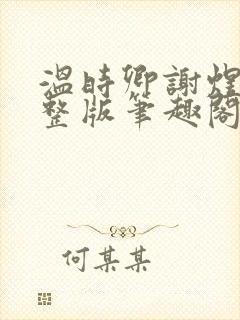 溫時卿謝煌
整版筆趣閣
何某某